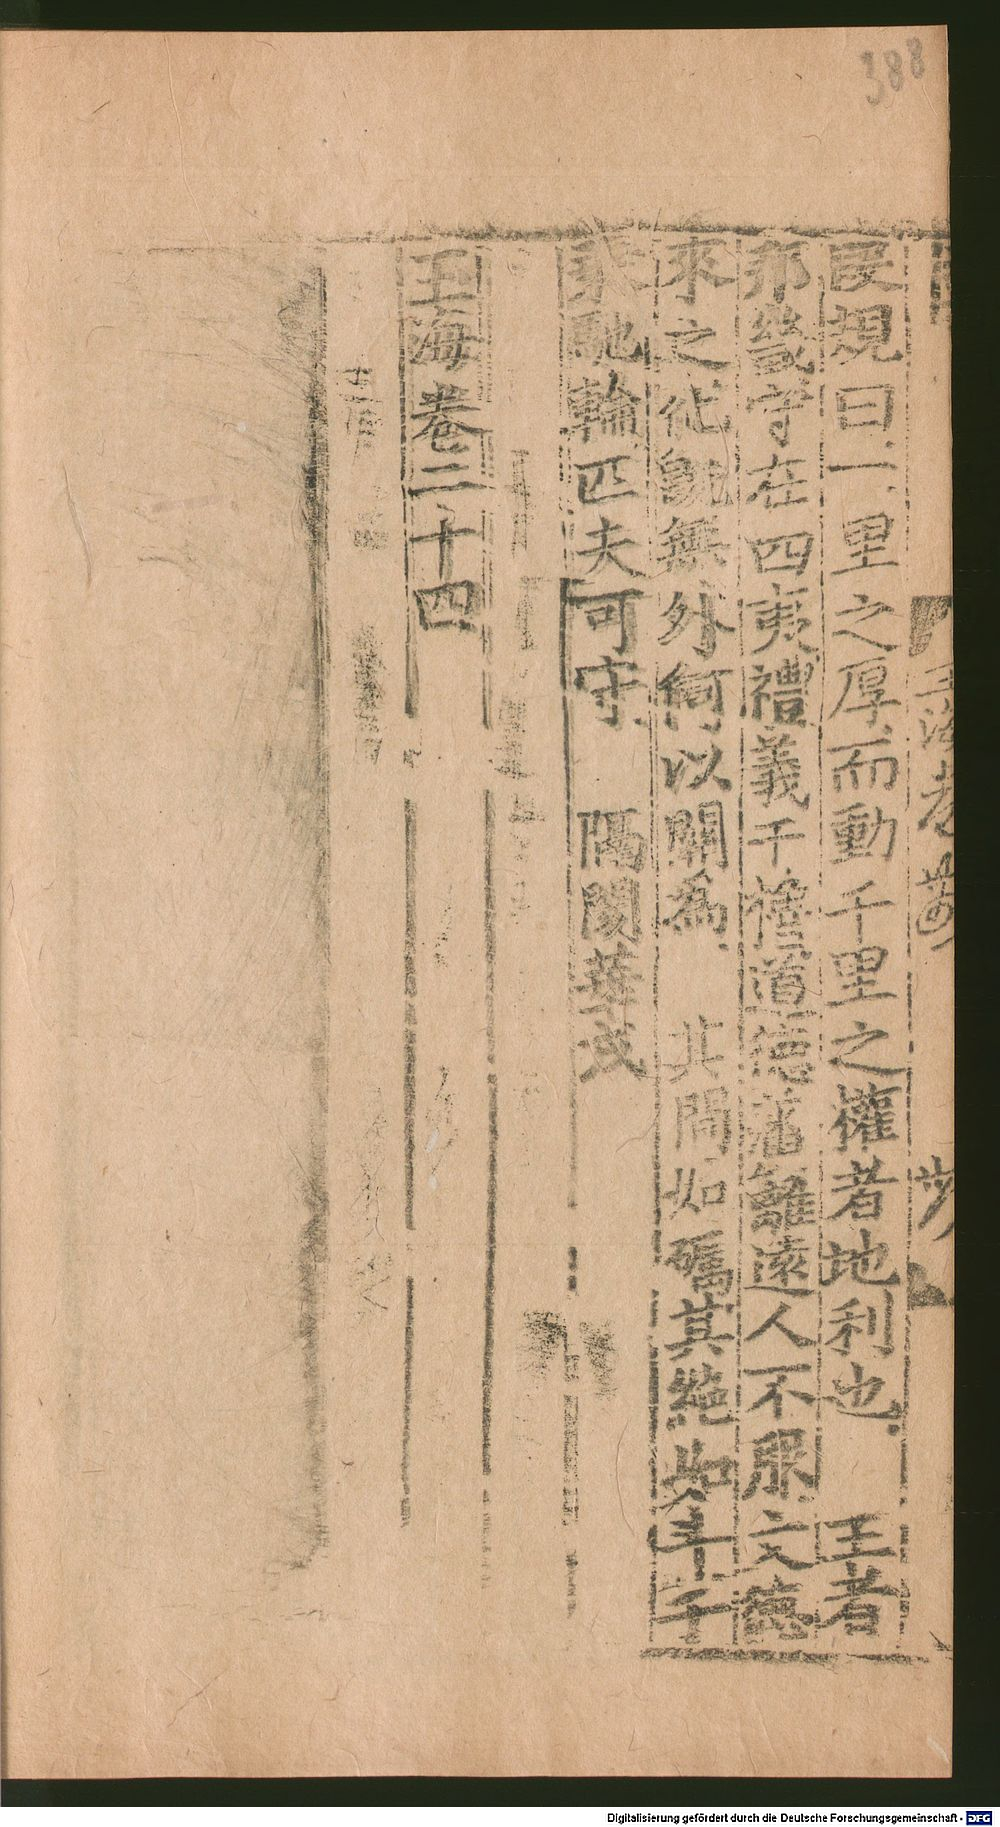 388
民規曰一里之厚而動千里之權者地利也 王者
邦畿守在四夷禮義干櫓道德藩籬遠人不服文德
來之化既無外何以關為 其間如礪其絶如斗千
乘馳輪匹夫可守 隔閡華戎
玉海卷二十四
Digitalisierung gefördert durch die Deutsche Forschungsgemeinschaft - DFG